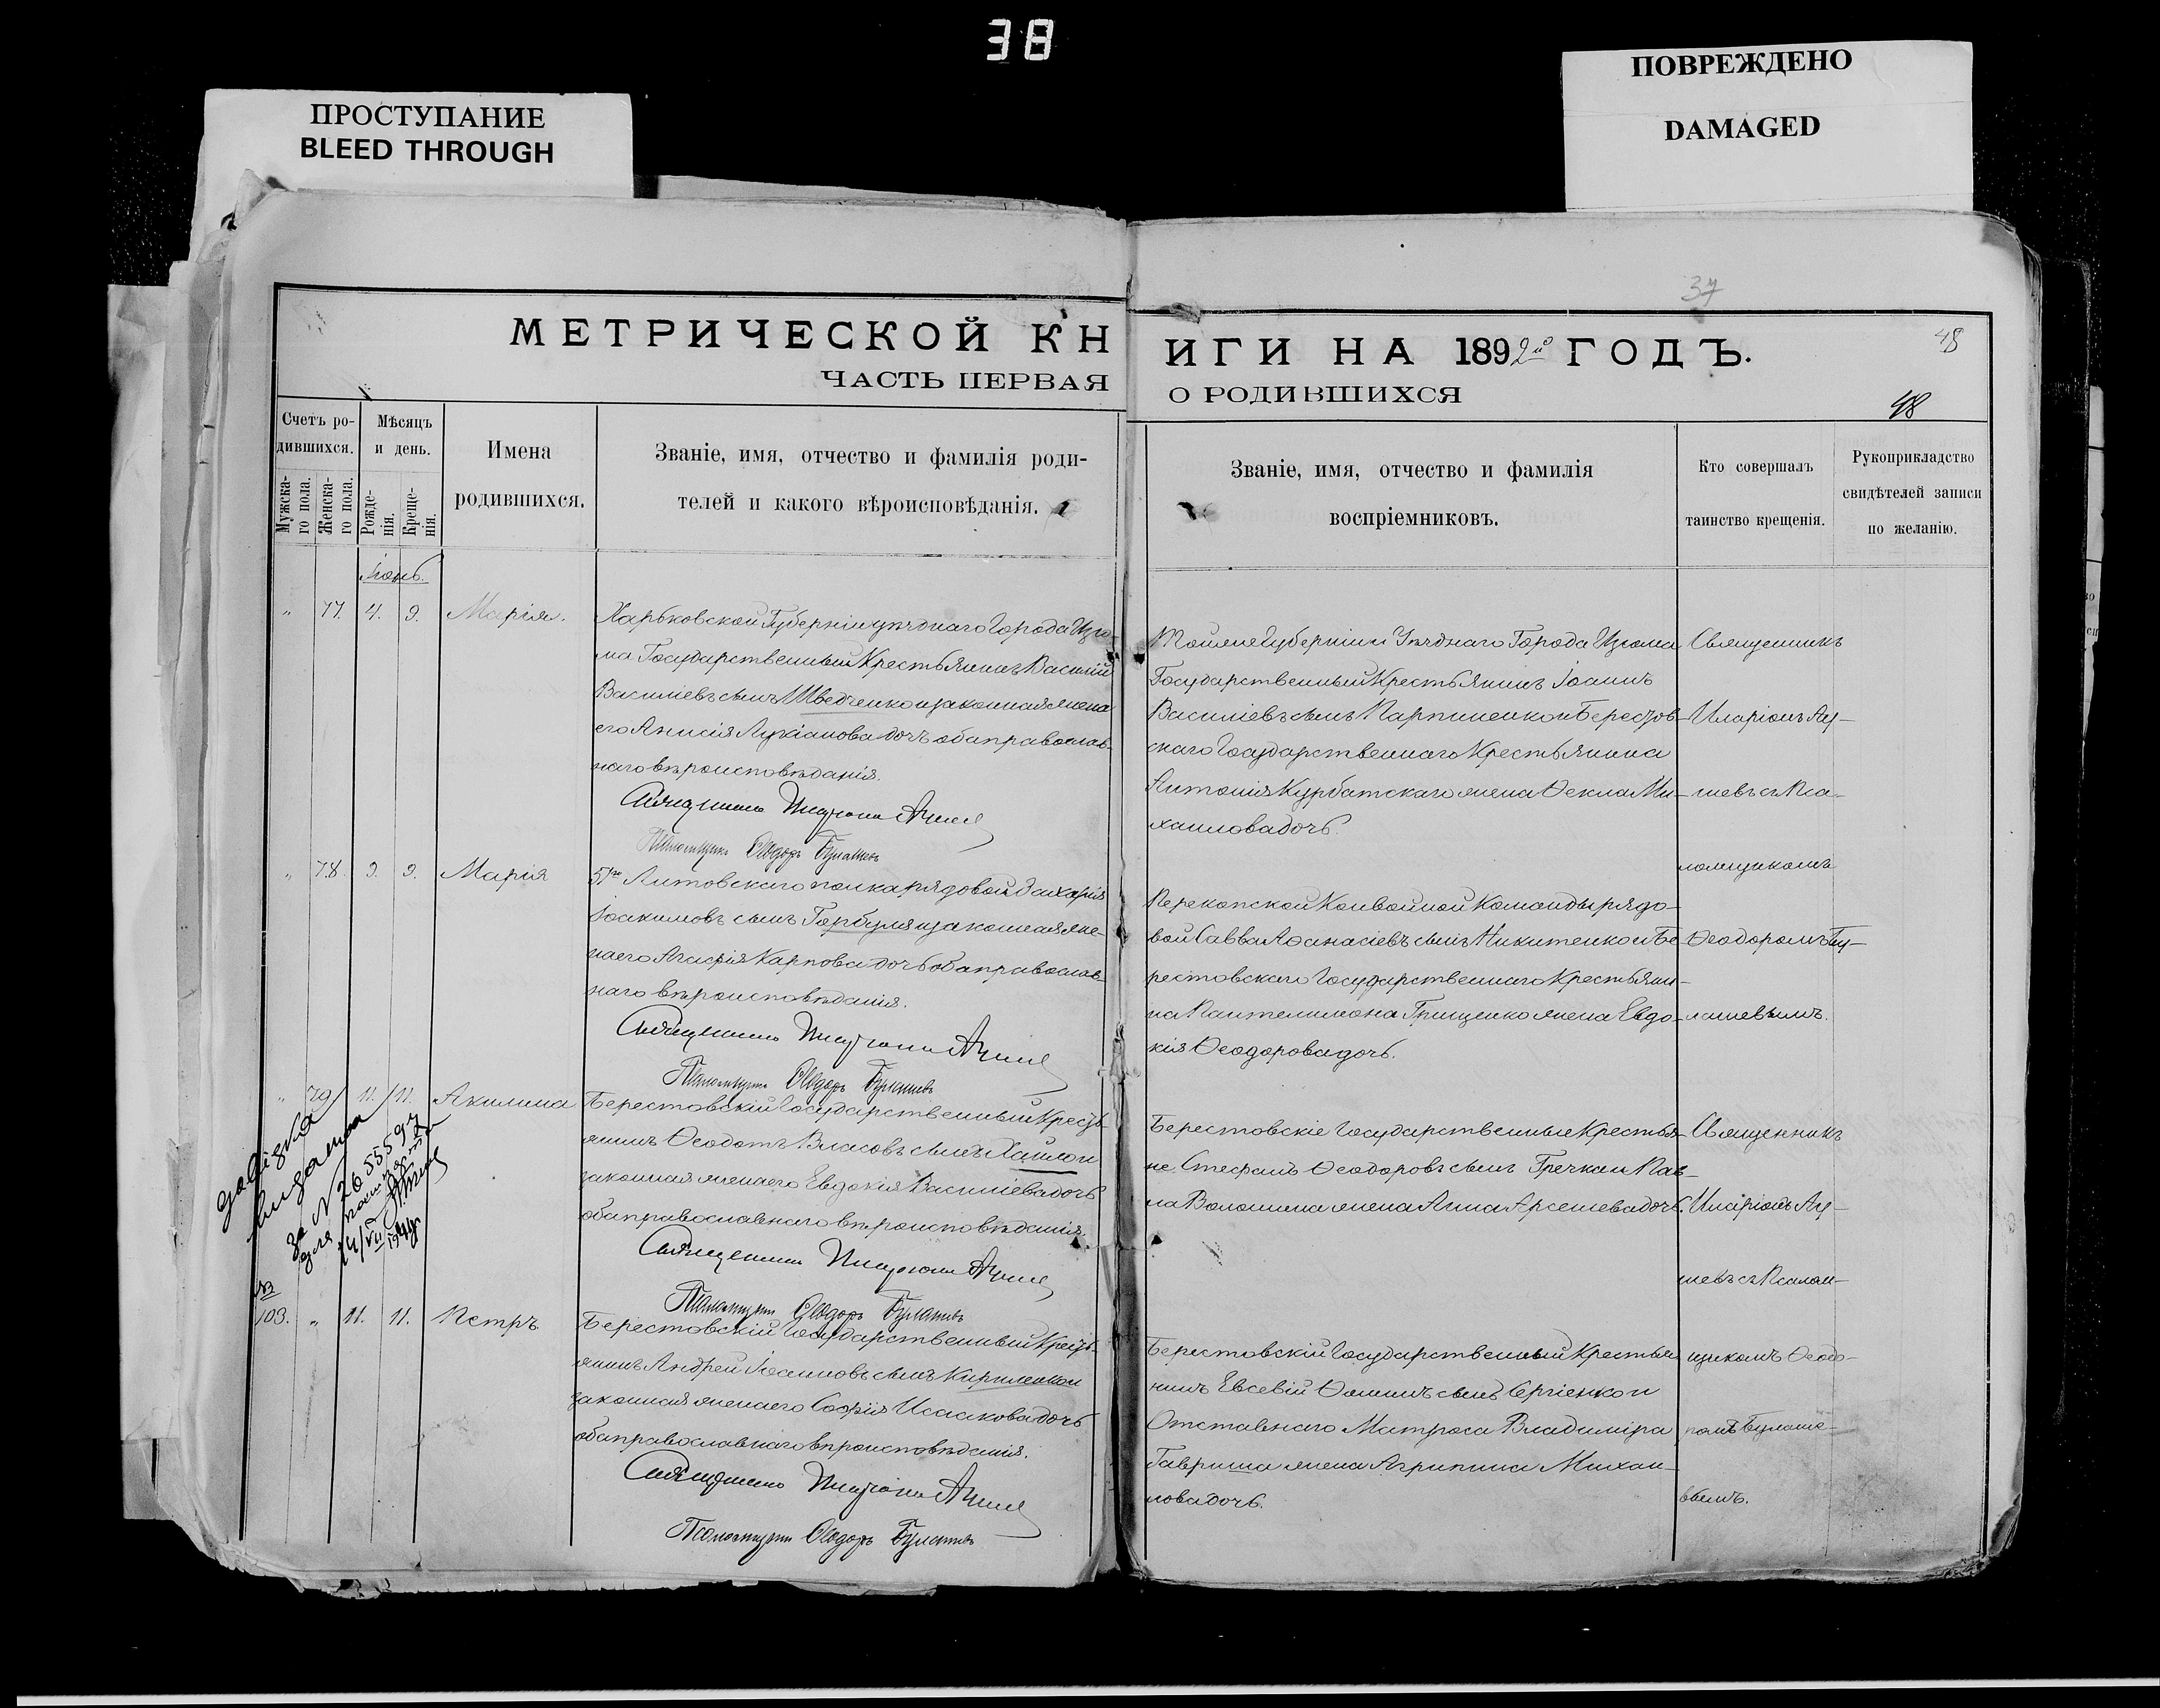 38
ПРОСТУПАНИЕ
BLEED THROUGH
ПОВРЕЖДЕНО
DAMAGED
37
48
МЕТРИЧЕСКОЙ КНИГИ НА 1892й ГОДЪ.
ЧАСТЬ ПЕРВАЯ О РОДИВШИХСЯ
48
Счетъ ро-
дившихся.
Мужска-
го пола.
Женска-
го пола.
Мѣсяцъ
и день.
Рожде-
нія.
Креще-
нія.
Имена
родившихся.
Званіе, имя, отчество и фамилія роди-
телей и какого вѣроисповѣданія.
Званіе, имя, отчество и фамилія
воспріемниковъ.
Кто совершалъ
таинство крещенія.
Рукоприкладство
свидѣтелей записи
по желанію.
Іюнь.
" 77. 4. 9. Марія.
Харьковской Губерніи уѣзднаго Города Изю-
ма Государственный Крестьянинъ Василій
Василіевъ сынъ Шведченко и законная жена
его Анисія Лукіанова дочь оба православ-
наго вѣроисповѣданія.
Священникъ Иларіонъ
Псаломщикъ Ѳеодоръ Булашевъ
Той же Губерніи Уѣзднаго Города Изюма
Государственный Крестьянинъ Іоаннъ
Василіевъ сынъ и Берестов-
скаго Государственнаго Крестьянина
Антонія Курбатскаго жена Ѳекла Ми-
хаилова дочь.
" 78. 9. 9. Марія
51го Литовскаго полка рядовой Захарія
Іоакимовъ сынъ Горбуля и законная же-
на его Агафія Карпова дочь оба православ-
наго вѣроисповѣданія.
Священникъ Иларіонъ
Псаломщикъ Ѳеодоръ Булашевъ
Перекопской Конвойной Команды рядо-
вой Савва Аѳанасіевъ сынъ Никитенко и Бе-
рестовскаго Государственнаго Крестьяни-
на Пантелимона Грищенко жена Евдо-
кія Ѳеодорова дочь.
Священникъ
Иларіонъ
шевъ съ Пса-
ломщикомъ
Ѳеодоромъ Бу-
лашевымъ.
" 79 11. 11. Акилина
Берестовскій Государственный Кресть-
янинъ Ѳеодотъ Власовъ сынъ и
законная жена его Евдокія Василіева дочь
оба православнаго вѣроисповѣданія.
Священникъ Иларіонъ
Псаломщикъ Ѳеодоръ Булашевъ
Берестовскіе Государственные Крестья-
не Стефанъ Ѳеодоровъ сынъ Гречка и Пав-
ла Волошина жена Анна Арсеніева дочь.
довідка
видана
за №
14/VII
103. " 11. 11. Петръ.
Берестовскій Государственный Кресть-
янинъ Андрей Іоанновъ сынъ Кириленко и
законная жена его Софія Исаакова дочь
оба православнаго вѣроисповѣданія.
Священникъ Иларіонъ
Псаломщикъ Ѳеодоръ Булашевъ
Берестовскій Государственный Крестья-
нинъ Евсевій Ѳоминъ сынъ Сергіенко и
Отставнаго Матроса Владиміра
Гавриша жена Агрипина Михаи-
лова дочь.
Священникъ
Иларіонъ
шевъ съ Псалом-
щикомъ Ѳеодо-
ромъ Булаше-
вымъ.